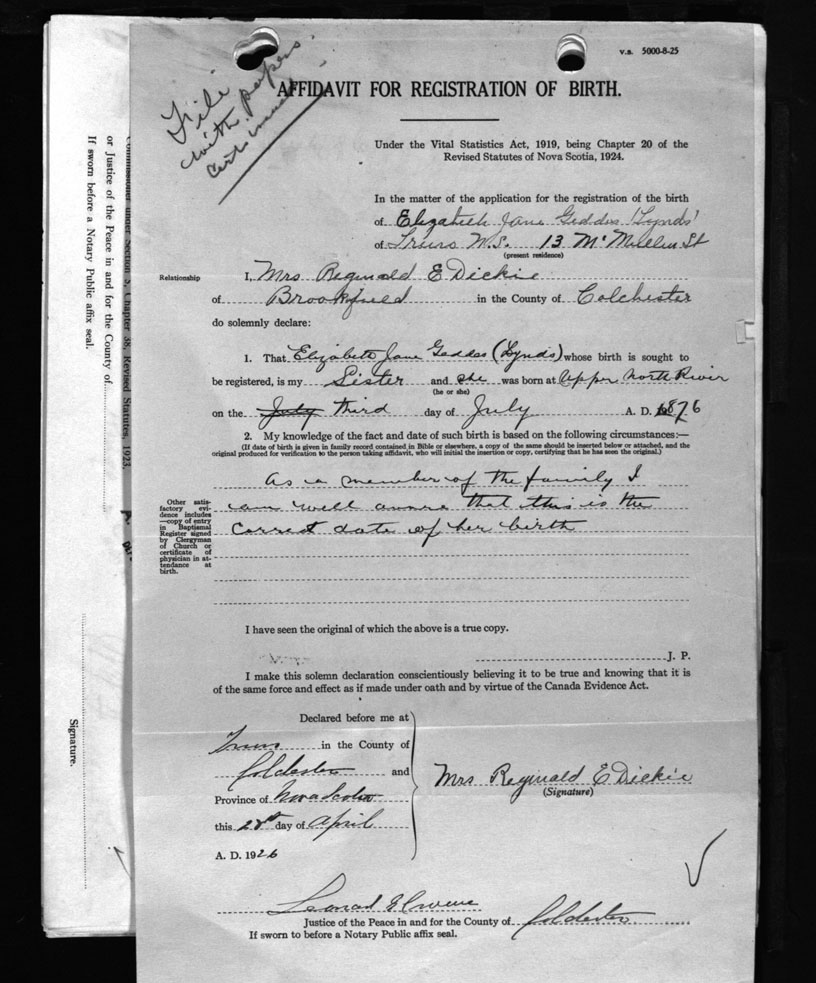 V.S. 5000-8-25
File
with papers
AFFIDAVIT FOR REGISTRATION OF BIRTH.
Under the Vital Statistics Act, 1919, being Chapter 20 of the
Revised Statutes of Nova Scotia, 1924.
In the matter of the application for the registration of the birth
of Elizabeth Jane Geddes (Lynds)
of Truro N.S. 13 McMillen St
(present residence)
Relationship
I, Mrs Reginald E Dickie
of Brookfield in the County of Colchester
do solemnly declare:
1. That Elizabeth Jane Geddes (Lynds) whose birth is sought to
be registered, is my Sister and she was born at Upper North River
(he or she)
on the July third day of July A. D. 1876
2. My knowledge of the fact and date of such birth is based on the following circumstances:—
(If date of birth is given in family record contained in Bible or elsewhere, a copy of the same should be inserted below or attached, and the
original produced for verification to the person taking affidavit, who will initial the insertion or copy, certifying that he has seen the original.)
As a member of the family I
am well aware that this is the
correct date of her birth
Other satis-
factory evi-
dence includes
—copy of entry
in Baptismal
Register signed
by Clergyman
of Church or
certificate of
physician in at-
tendance at
birth.
I have seen the original of which the above is a true copy.
J. P.
I make this solemn declaration conscientiously believing it to be true and knowing that it is
of the same force and effect as if made under oath and by virtue of the Canada Evidence Act.
Declared before me at
Truro in the County of
Colchester and
Province of Nova Scotia
this 28th day of April
A. D. 1926
Mrs Reginald E Dickie
(Signature)
Justice of the Peace in and for the County of Colchester
If sworn to before a Notary Public affix seal.
Commissioner under Section 5, Chapter 38, Revised Statutes, 1923.
or Justice of the Peace in and for the County of
If sworn before a Notary Public affix seal.
Signature.